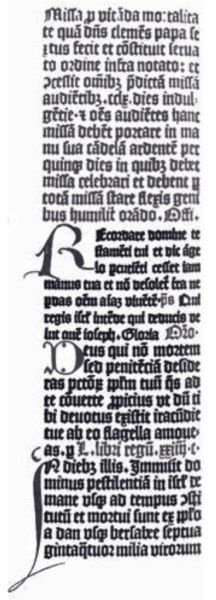 Missa p vitāda mo:talitate
te quā dn̄s clemēs papa se
xtus fecit et cōstituit serua
to ordine infra notato: et
ꝯcessit om̄ibꝫ p̄dictā missā
audiētibꝫ .cclx. dies indul-
gētie. ⁊ oēs audiētes hanc
missā debēt portare in ma
nu sua cādelā ardentē per
quinqꝫ dies in quibꝫ debet
missa celebrari et debent p
totā missā stare flexis geni
bus humilit̄ orādo. Offi.
REcordare domine te
stamēti tui et dic āge
lo percutiēti cesset iam
manus tua et nō desolet̄ t̄ra ne
ꝑdas oēm aīaꝫ viuētē. p̄s Qui
regis isr̄l intēde qui deducis ve
lut ouē ioseph. Gloria Oro.
Deus qui nō mortem
sed penitētiā deside
ras pctōꝝ pp̄lm tuū q̄s ad
te cōuertē ꝓpitius vt dū ti
bi deuotus existit iracūdie
tue ab eo flagella amoue-
as. p L. libri regū. xxiiij. c.
IN diebꝫ illis. Immisit do
minus pestilentiā in isr̄l de
mane vsqꝫ ad tempus ꝯsti
tutū et mortui sunt ex pp̄lo
a dan vsqꝫ bersabee septua
gintaq̄tuor milia virorum